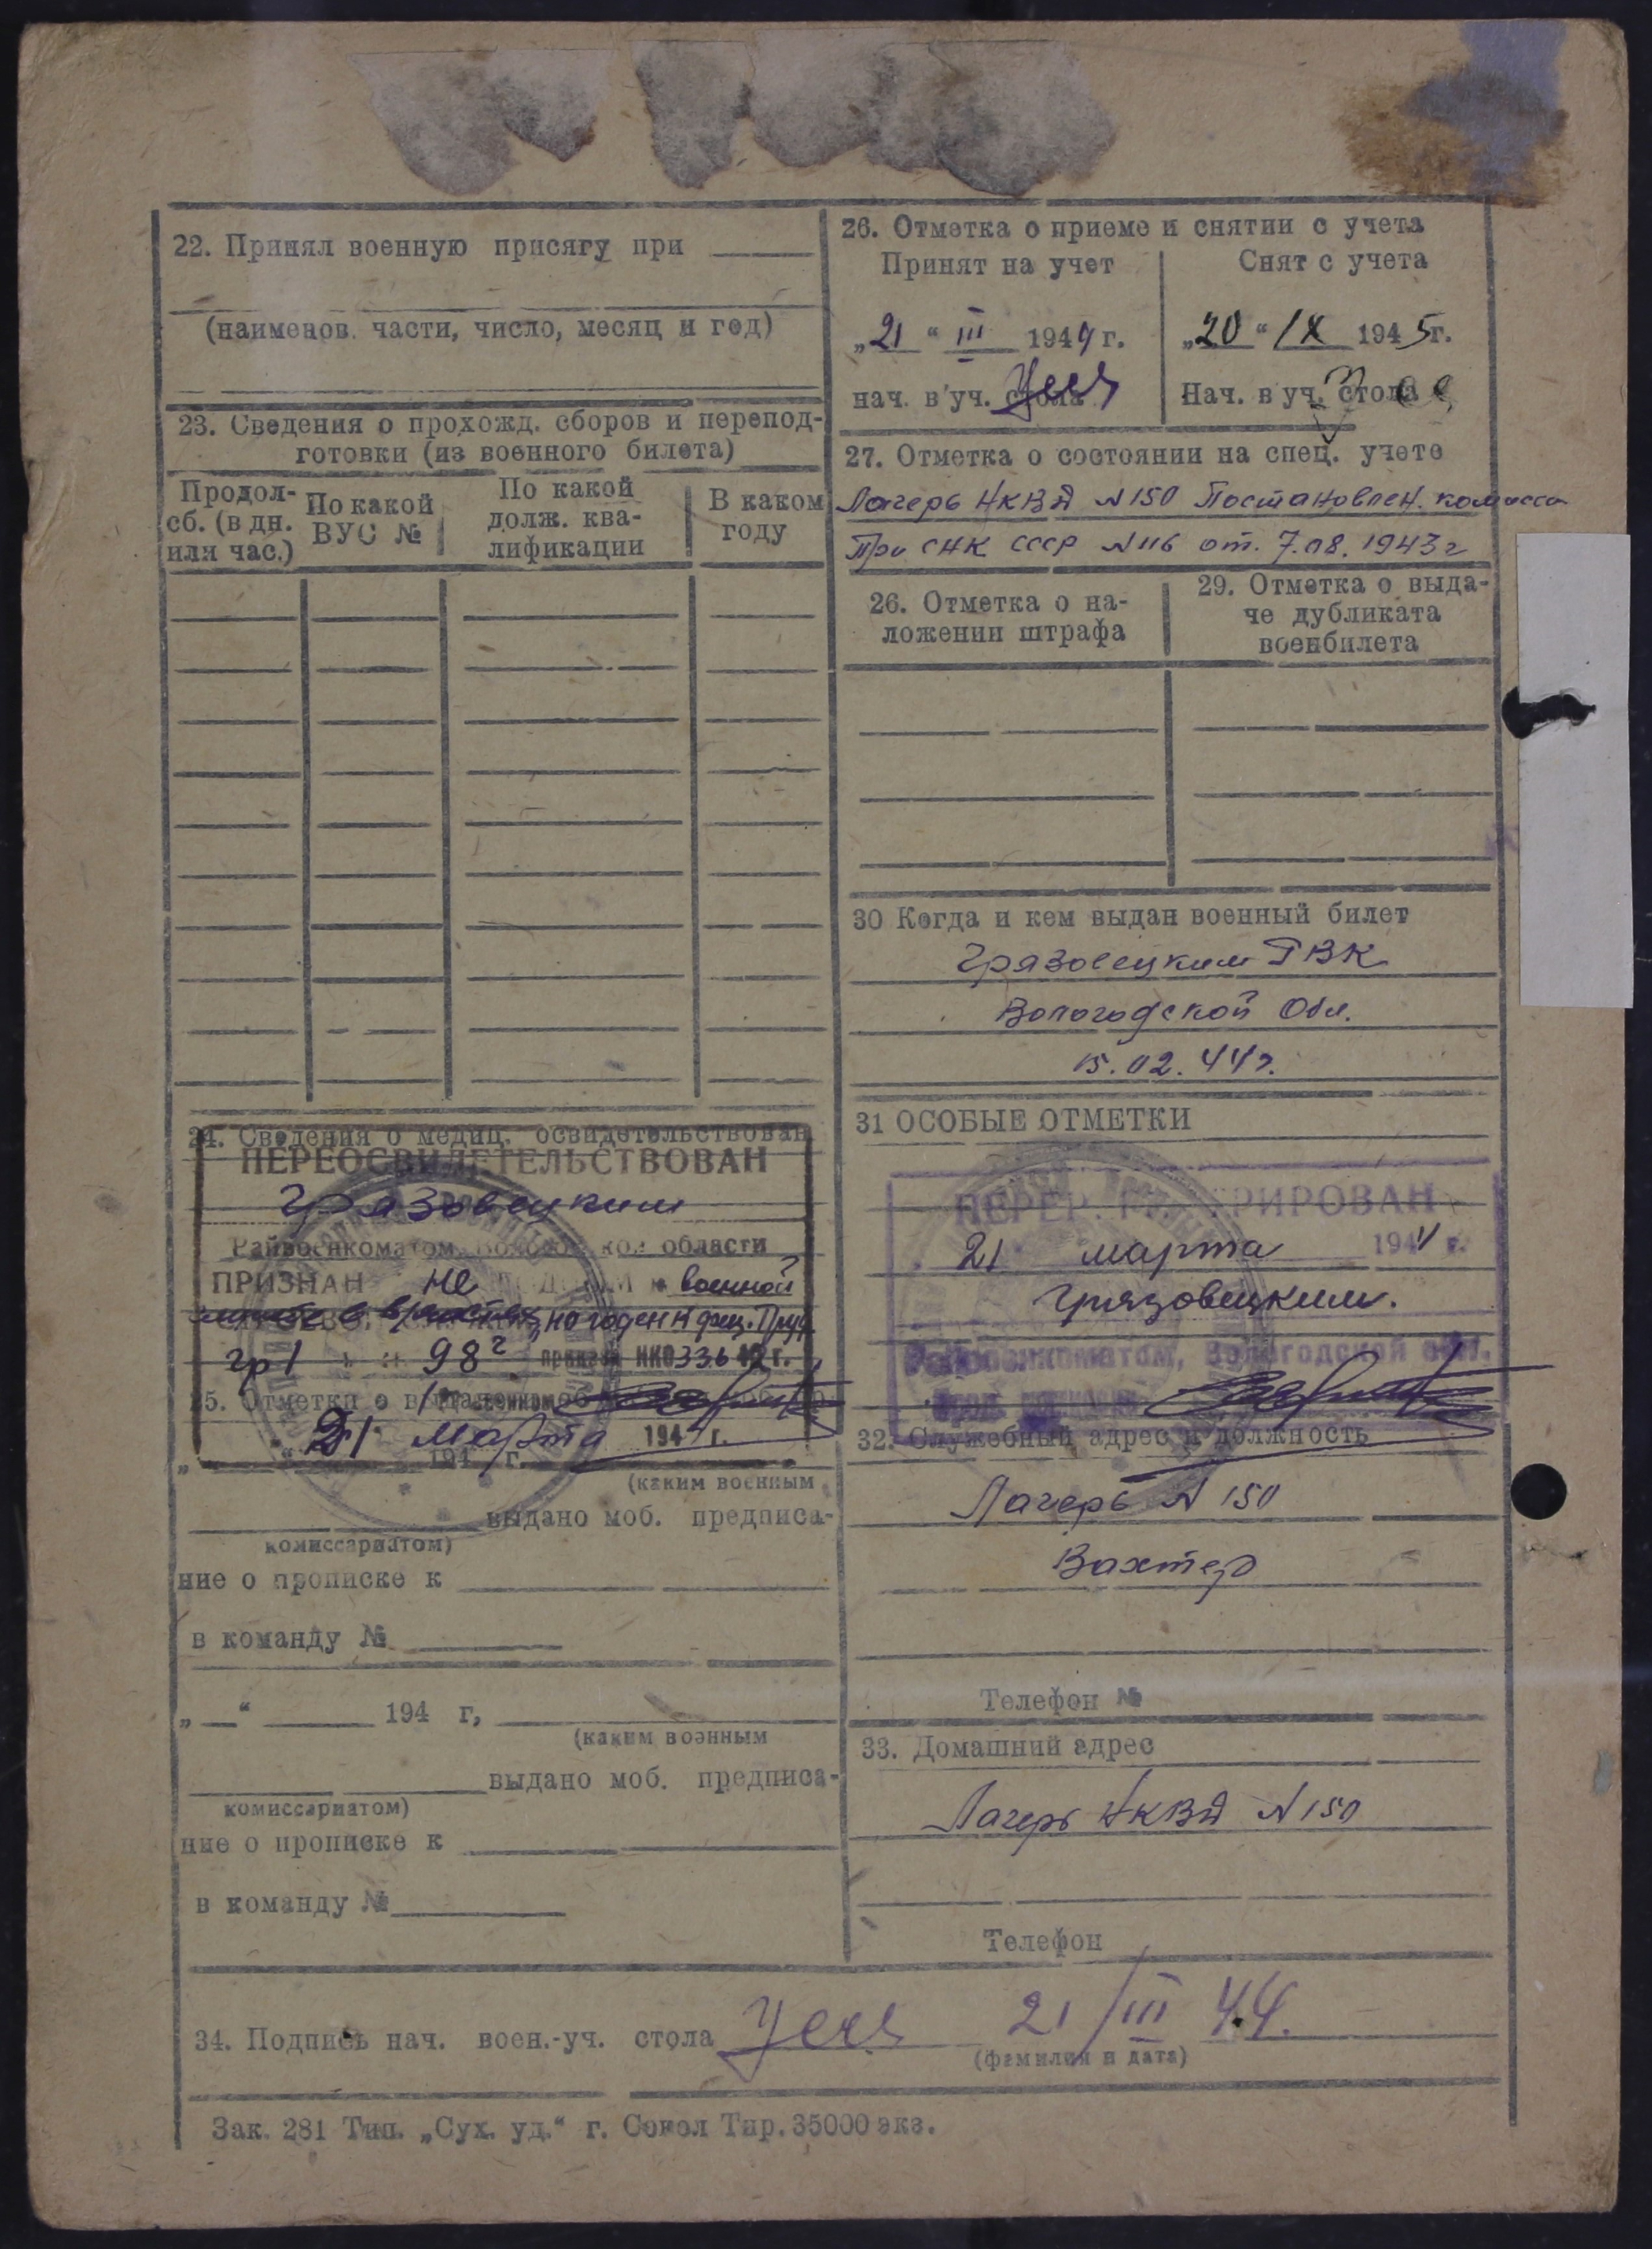 22. Принял военную присягу при
(наименов. части, число, месяц и год)
23. Сведения о прохожд. сборов и перепод-
готовки (из военного билета)
Продол-
сб. (в дн.
или час.)
По какой
ВУС №
По какой
долж. ква-
лификации
В каком
году
24. Сведения о медиц. освидетельствован
ПЕРЕОСВИДЕТЕЛЬСТВОВАН
Грязовецким
Райвоенкоматом, Вологодской области
ПРИЗНАН не военной
но годен к физ. Труд.
гр 1 98 г приказа НКО 336 42 г.
25. Отметки о
21 марта 1944 г.
194 г.
(каким военным
выдано моб. предписа-
комиссариатом)
ние о прописке к
в команду №
„ “ 194 г,
(каким военным
выдано моб. предписа-
комиссариатом)
ние о прописке к
в команду №
26. Отметка о приеме и снятии с учета
Принят на учет
„21“ III 1944 г.
нач. в уч. стола
Снят с учета
„20“ IX 1945 г.
Нач. в уч. стола
27. Отметка о состоянии на спец. учете
Лагерь НКВД №150 Постановлен. комисси
При СНК СССР №116 от. 7.08.1943 г
26. Отметка о на-
ложении штрафа
29. Отметка о выда-
че дубликата
военбилета
30 Когда и кем выдан военный билет
Грязовецким РВК
Вологодской Обл.
15.02.44 г.
31 ОСОБЫЕ ОТМЕТКИ
ПЕРЕРЕГИСТРИРОВАН
21 марта 1944 г.
Грязовецким.
Райвоенкоматом, Вологодской обл.
32. Служебный адрес и должность
Лагерь №150
Вахтер
Телефон №
33. Домашний адрес
Лагерь НКВД №150
Телефон
34. Подпись нач. воен.-уч. стола 21/III 44.
(фамилия и дата)
Зак. 281 Тип. „Сух. уд.“ г. Сокол Тир. 35000 экз.